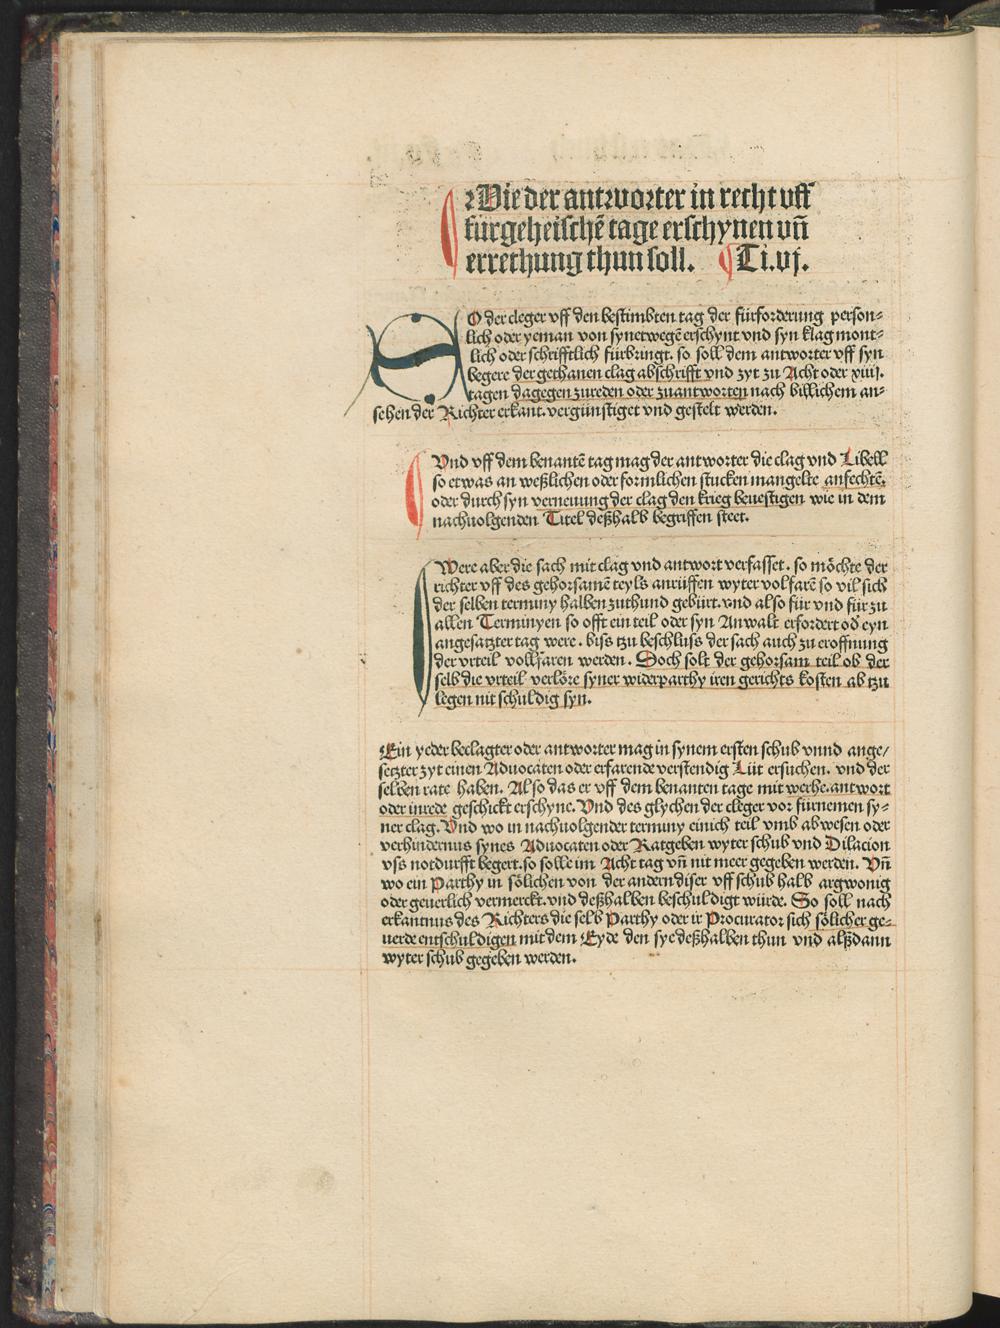 Wie der antworter in recht vff
fürgeheischē tage erschynen vñ
errechung thun soll. Ti.vj.
SO der cleger vff den bestimbten tag der fürforderung person-
lich oder yeman von synetwegē erschynt vnd syn klag mont-
lich oder schrifftlich fürbringt. so soll dem antworter vff syn
begere der gethanen clag abschrifft vnd zyt zu Acht oder xiiij.
tagen dagegen zureden oder zuantworten nach billichem an-
sehen der Richter erkant. vergünstiget vnd gestelt werden.
Vnd vff dem benantē tag mag der antworter die clag vnd Libell
so etwas an weßlichen oder formlichen stucken mangelte anfechtē.
oder durch syn verneuung der clag den krieg beuestigen wie in dem
nachuolgenden Titel deßhalb begriffen steet.
Were aber die sach mit clag vnd antwort verfasset. so möchte der
richter vff des gehorsamē teyls anrüffen wyter volfarē so vil sich
der selben terminy halben zuthund gebürt. vnd also für vnd für zu
allen Terminyen so offt ein teil oder syn Anwalt erfordert od̄ eyn
angesatzter tag were. biss tzu beschluss der sach auch zu eroffnung
der vrteil vollfaren werden. Doch solt der gehorsam teil ob der
selb die vrteil verlöre syner widerparthy iren gerichts kosten ab tzu
legen nit schuldig syn.
Ein yeder beclagter oder antworter mag in synem ersten schub vnnd ange/
setzter zyt einen Aduocaten oder erfarende verstendig Lüt ersuchen. vnd der
selben rate haben. Also das er vff dem benanten tage mit werhe. antwort
oder inrede geschickt erschyne. Vnd des glychen der cleger vor fürnemen sy-
ner clag. Vnd wo in nachuolgender terminy einich teil vmb abwesen oder
verhindernus synes Aduocaten oder Ratgeben wyter schub vnd Dilacion
vss notdurfft begert. so solle im Acht tag vñ nit meer gegeben werden. Vñ
wo ein Parthy in sölichen von der andern diser vff schub halb argwonig
oder geuerlich vermerckt. vnd deßhalben beschuldigt würde. So soll nach
erkantnus des Richters die selb Parthy oder ir Procurator sich sölicher ge-
uerde entschuldigen mit dem Eyde den sye deßhalben thun vnd alßdann
wyter schub gegeben werden.